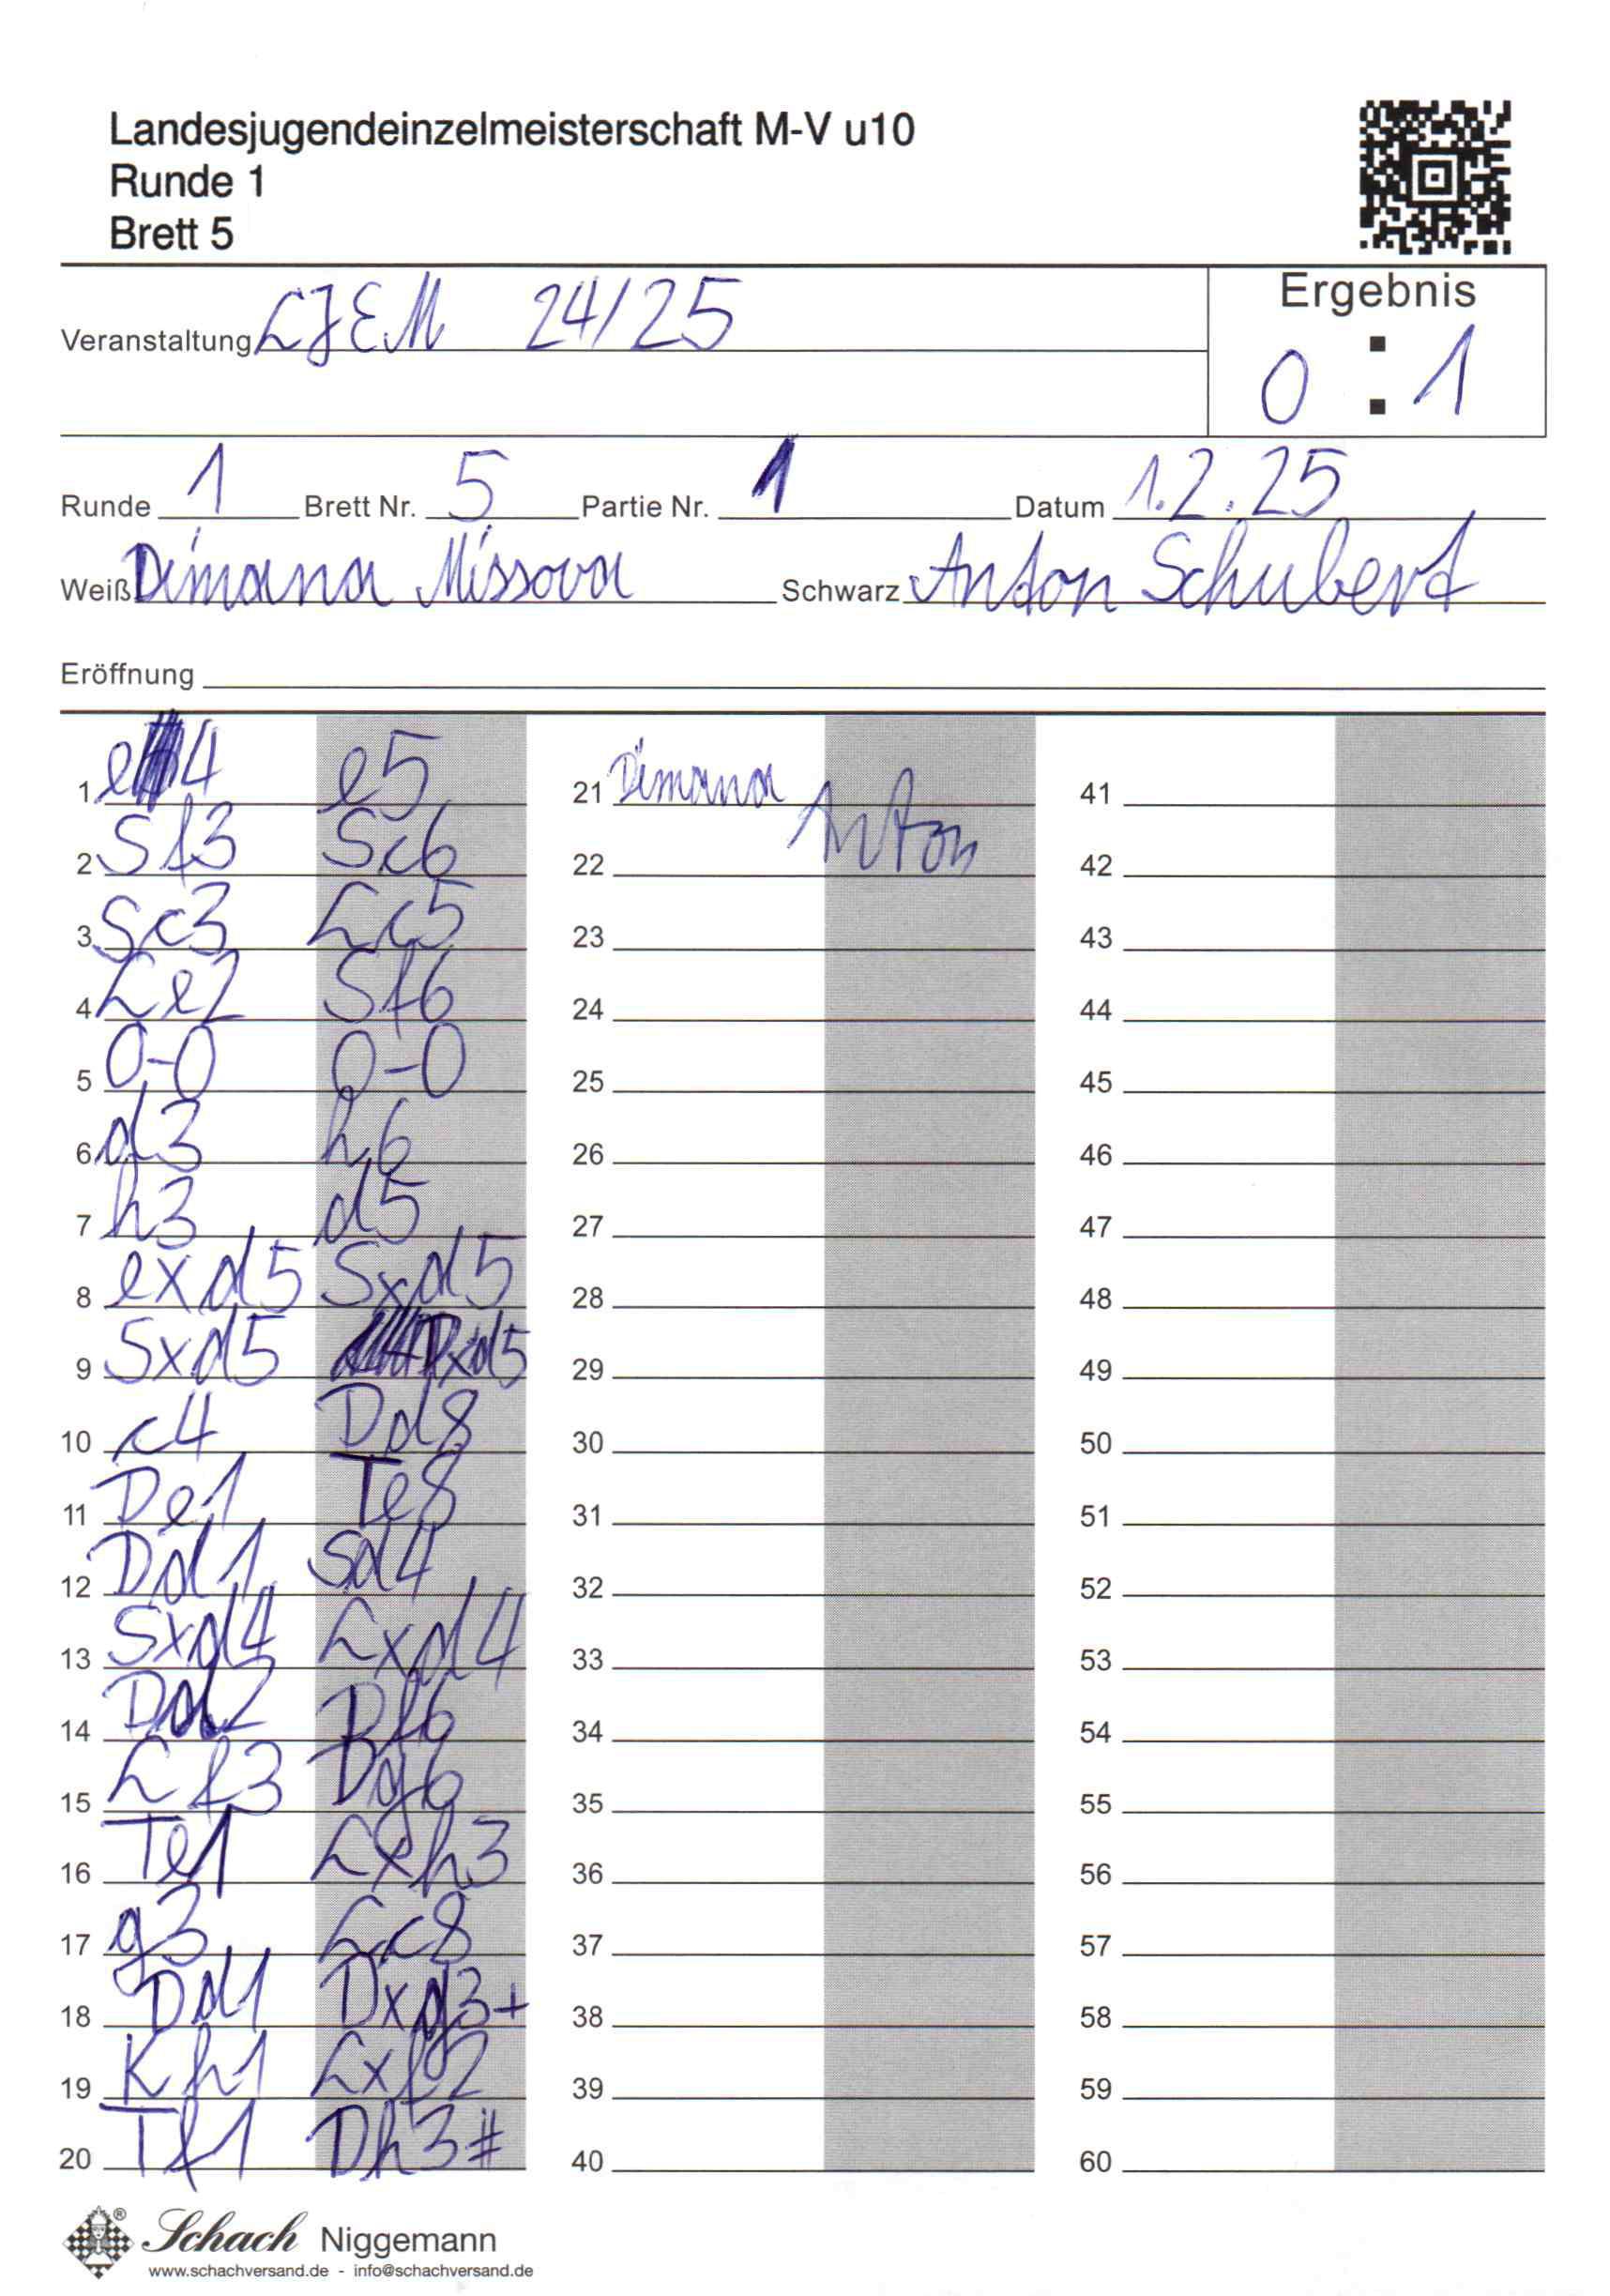 Landesjugendeinzelmeisterschaft M-V u10
Runde 1
Brett 5
Ergebnis
Veranstaltung LJEM 24/25
0 : 1
Runde 1 Brett Nr. 5 Partie Nr. 1 Datum 1.2.25
Weiß Dimana Missova Schwarz Anton Schubert
Eröffnung
1 e4 e5 21 Dimana 41
2 Sf3 Sc6 22 Anton 42
3 Sc3 Lc5 23 43
4 Le2 Sf6 24 44
5 0-0 0-0 25 45
6 d3 h6 26 46
7 h3 d5 27 47
8 exd5 Sxd5 28 48
9 Sxd5 Dxd5 29 49
10 c4 Dd8 30 50
11 De1 Te8 31 51
12 Dd1 Sd4 32 52
13 Sxd4 Lxd4 33 53
14 Dd2 Df6 34 54
15 Lf3 Dg6 35 55
16 Te1 Lxh3 36 56
17 g3 Lc8 37 57
18 Dd1 Dxg3+ 38 58
19 Kh1 Lxf2 39 59
20 Tf1 Dh3# 40 60
Schach Niggemann
®
www.schachversand.de - info@schachversand.de